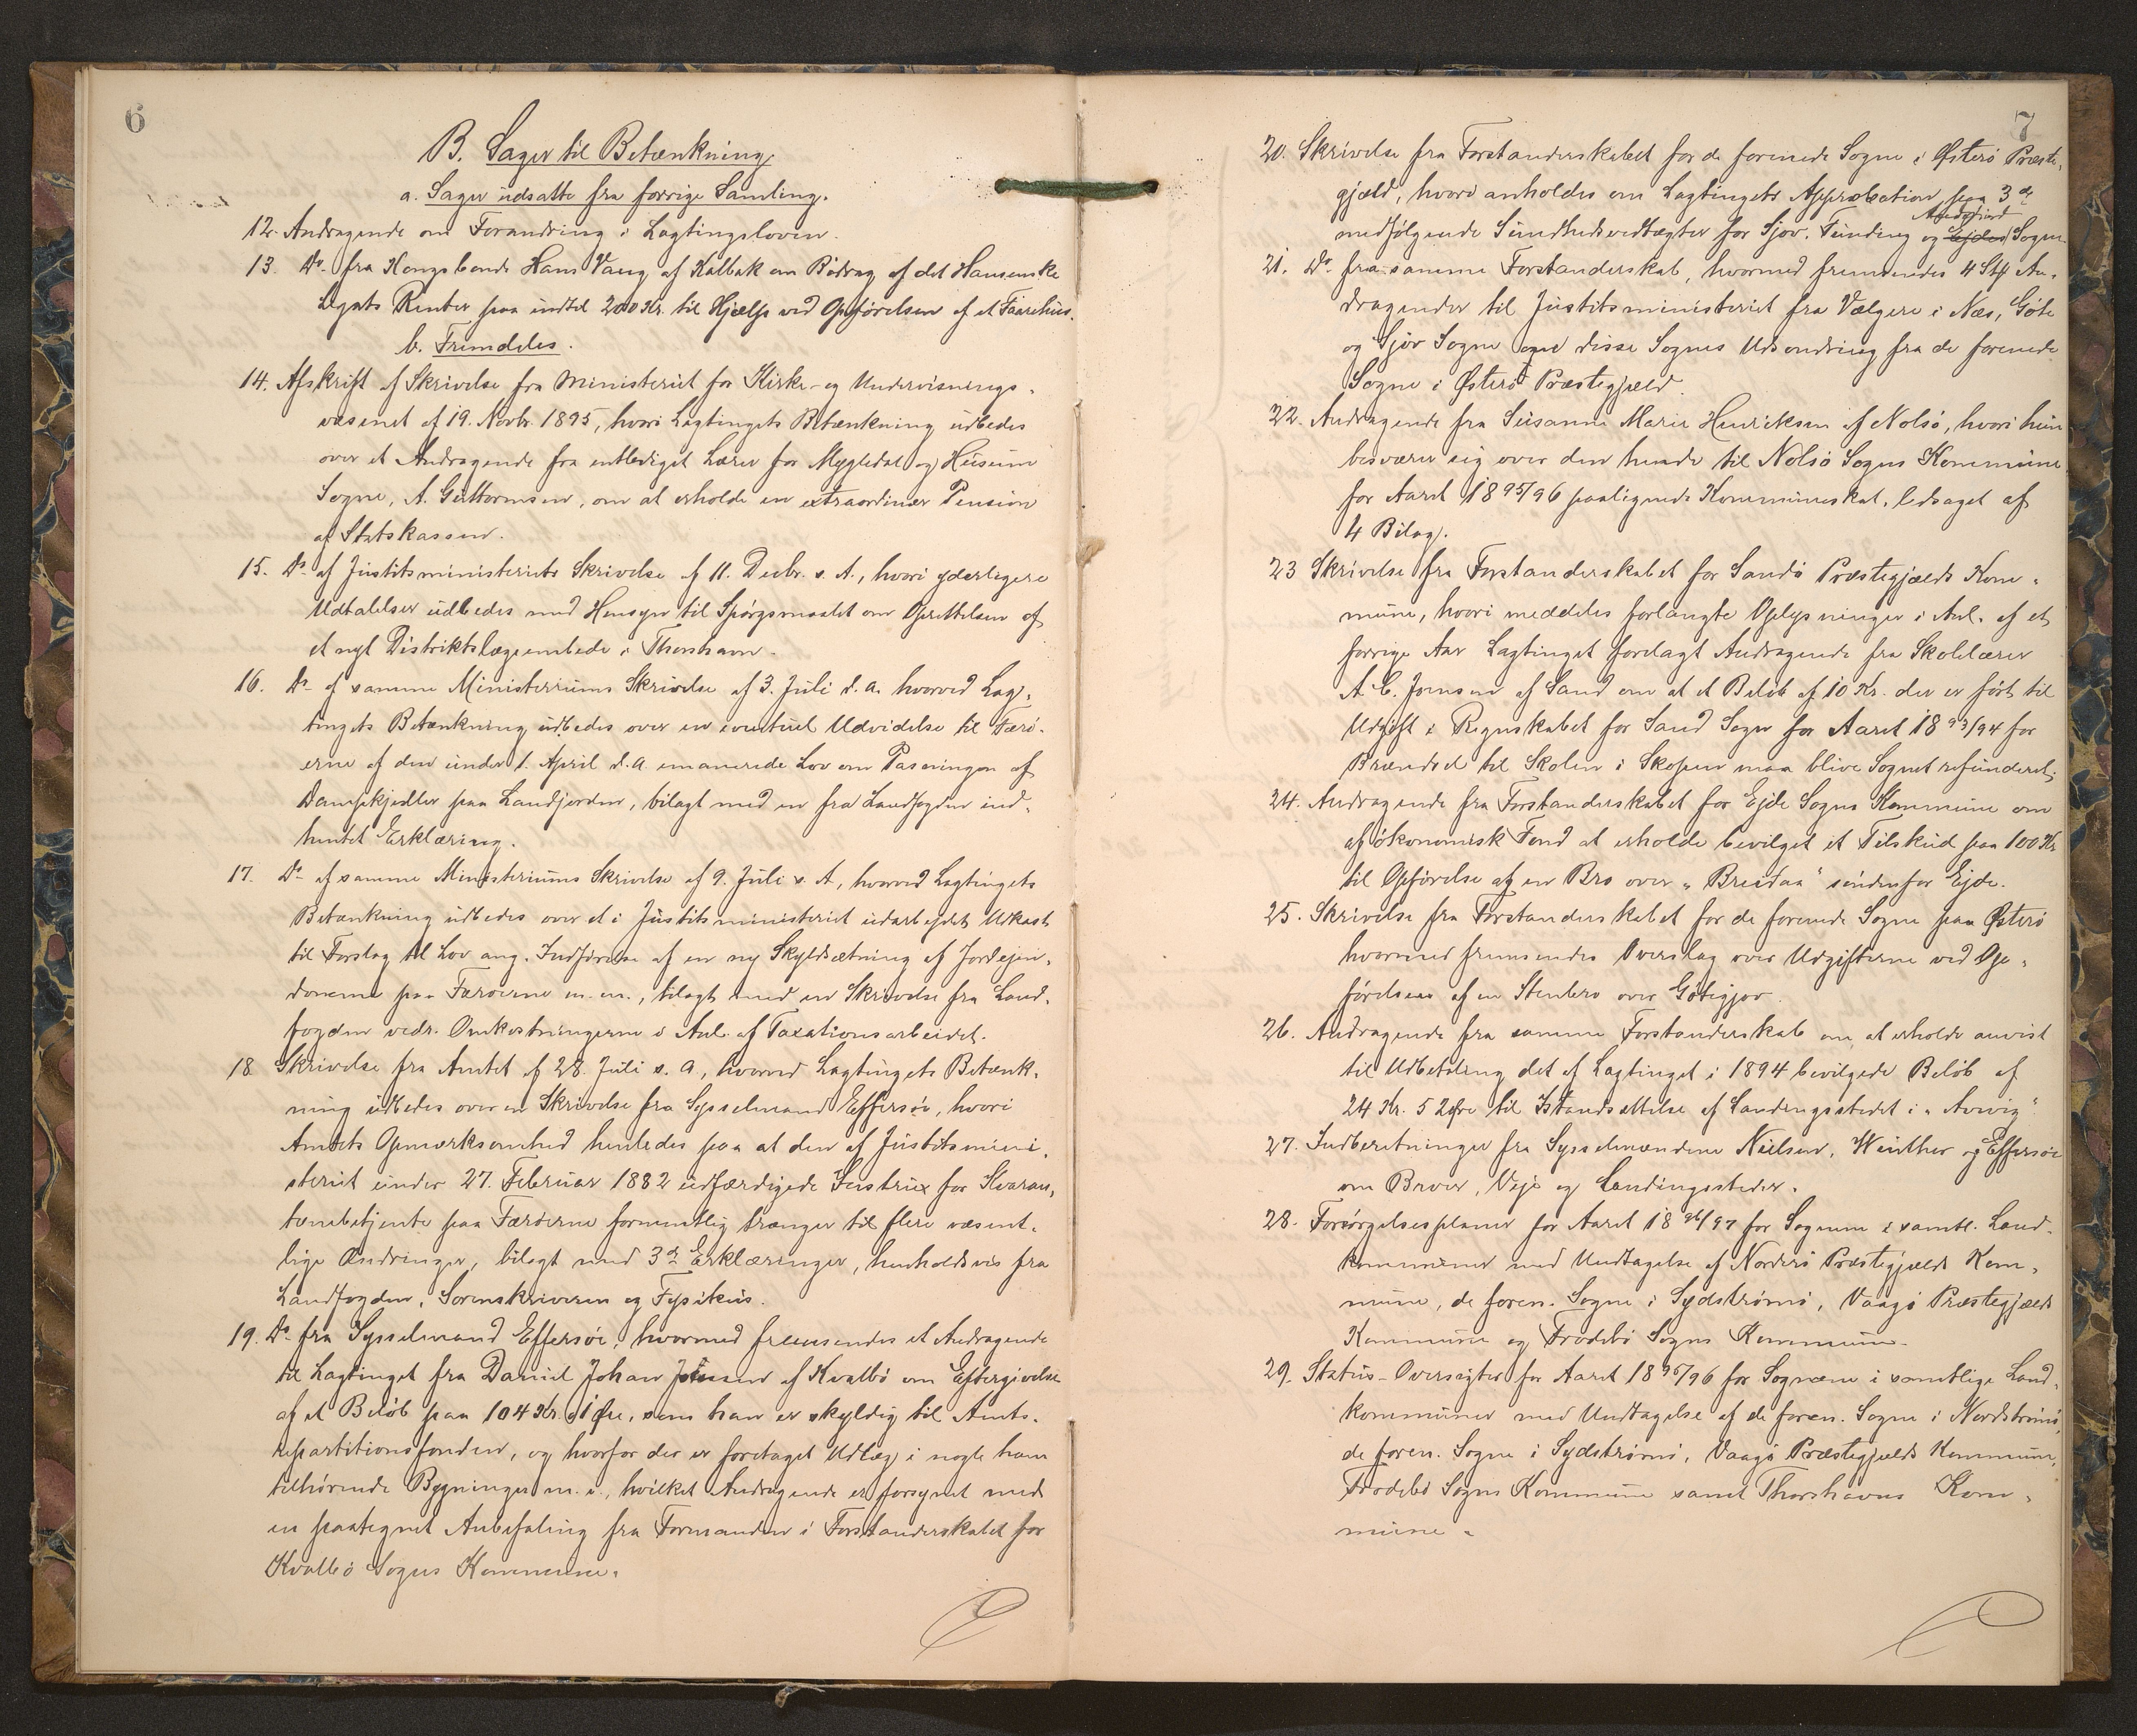 6
B. Sager til Betænkning
a. Sager udsatte fra forrige Samling.
12. Andragende om Forandring i Lagtingsloven.
13. Do fra Kongsbonde Hans Vang af Kalbak om Bidrag af det Hansenske
Legats Renter paa indtil 200 Kr. til Hjælp ved Opførelsen af et Faarehus.
b. Fremdeles.
14. Afskrift af Skrivelse fra Ministeriet for Kirke- og Undervisnings-
væsenet af 19. Novbr. 1895, hvori Lagtingets Betænkning udbedes
over et Andragende fra entlediget Lærer for Mygledal og Husum
Sogne, A. Guttormsen, om at erholde en extraordinær Pension
af Statskassen.
15. Do af Justitsministeriets Skrivelse af 11. Decbr. s. A., hvori yderligere
Udtalelser udbedes med Hensyn til Spørgsmaalet om Oprettelsen af
et nyt Distriktslægeembede i Thorshavn.
16. Do af samme Ministeriums Skrivelse af 3. Juli d. A. hvorved Lag-
tingets Betænkning udbedes over en eventuel Udvidelse til Færø-
erne af den under 1. April d. A. emanerede Lov om Pasningen af
Dampkjedler paa Landjorden, bilagt med en fra Landfogden ind-
hentet Erklæring.
17. Do af samme Ministeriums Skrivelse af 9. Juli s. A., hvorved Lagtingets
Betænkning udbedes over et i Justitsministeriet udarbejdet Udkast
til Forslag til Lov ang. Indførelse af en ny Skyldsætning af Jordejen-
domme paa Færøerne m. m., bilagt med en Skrivelse fra Land-
fogden vedr. Omkostningerne i Anl. af Taxationsarbeidet.
18 Skrivelse fra Amtet af 28. Juli s. A., hvorved Lagtingets Betænk-
ning udbedes over en Skrivelse fra Sysselmand Effersøe, hvori
Amtets Opmærksomhed henledes paa at den af Justitsmini-
steriet under 27. Februar 1882 udfærdigede Instrux for Kvaran-
tænebetjente paa Færøerne formentlig trænger til flere væsent-
lige Ændringer, bilagt med 3de Erklæringer, henholdsvis fra
Landfogden, Sorenskriveren og Fysikus.
19. Do fra Sysselmand Effersøe, hvormed fremsendes et Andragende
til Lagtinget fra Daniel Johan Joensen af Kvalbø om Eftergivelse
af et Beløb paa 104 Kr. 61 Øre, som han er skyldig til Amts-
repartitionsfonden, og hvorfor der er foretaget Udlæg i nogle ham
tilhørende Bygninger m. v., hvilket Andragende er forsynet med
en paategnet Anbefaling fra Formanden i Forstanderskabet for
Kvalbø Sogns Kommune.
7
20. Skrivelse fra Forstanderskabet for de forenede Sogne i Østerø Præste-
gjæld, hvori anholdes om Lagtingets Approbation paa 3de
Andefjord
medfølgende Sundhedsvedtægter for Sjov, Funding og Ejde Sogne.
21. Do fra samme Forstanderskab, hvormed fremsendes 4 Stk An-
dragender til Justitsministeriet fra Vælgere i Næs, Gøte
og Sjov Sogne om disse Sognes Udsondring fra de forenede
Sogne i Østerø Præstegjæld.
22. Andragende fra Susanne Marie Henriksen af Nolsø, hvori hun
besværer sig over den hende til Nolsø Sogns Kommune
for Aaret 1895/96 paalignede Kommuneskat, ledsaget af
4 Bilag.
23 Skrivelse fra Forstanderskabet for Sandø Præstegjælds Kom-
mune, hvori meddeles forlangte Oplysninger i Anl. af et
forrige Aar Lagtinget forelagt Andragende fra Skolelærer
A. C. Joensen af Sand om at et Beløb af 10 Kr. der er ført til
Udgift i Regnskabet for Sand Sogn for Aaret 1893/94 for
Brændsel til Skolen i Skopen maa blive Sognet refunderet.
24. Andragende fra Forstanderskabet for Ejde Sogns Kommune om
af økonomisk Fond at erholde bevilget et Tilskud paa 100 Kr
til Opførelse af en Bro over „Breidaa" søndenfor Ejde.
25. Skrivelse fra Forstanderskabet for de forenede Sogne paa Østerø
hvormed fremsendes Overslag over Udgifterne ved Op-
førelsen af en Stenbro over Gøtegjov.
26. Andragende fra samme Forstanderskab om at erholde anvist
til Udbetaling det af Lagtinget i 1894 bevilgede Beløb af
24 Kr. 52 Øre til Istandsættelse af Landingsstedet i „Arvvig".
27. Indberetninger fra Sysselmændene Nielsen, Winther og Effersøe
om Broer, Veje og Landingssteder.
28. Forsørgelsesplaner for Aaret 1896/97 for Sognene i samtl. Land-
kommuner med Undtagelse af Norderø Præstegjælds Kom-
mune, de foren. Sogne i Sydstrømø, Vaagø Præstegjælds
Kommune og Frodebø Sogns Kommune.
29. Status-Oversigter for Aaret 1895/96 for Sognene i samtlige Land-
kommuner med Undtagelse af de foren. Sogne i Nordstrømø,
de foren. Sogne i Sydstrømø, Vaagø Præstegjælds Kommune,
Frodebø Sogns Kommune samt Thorshavns Kom-
mune.